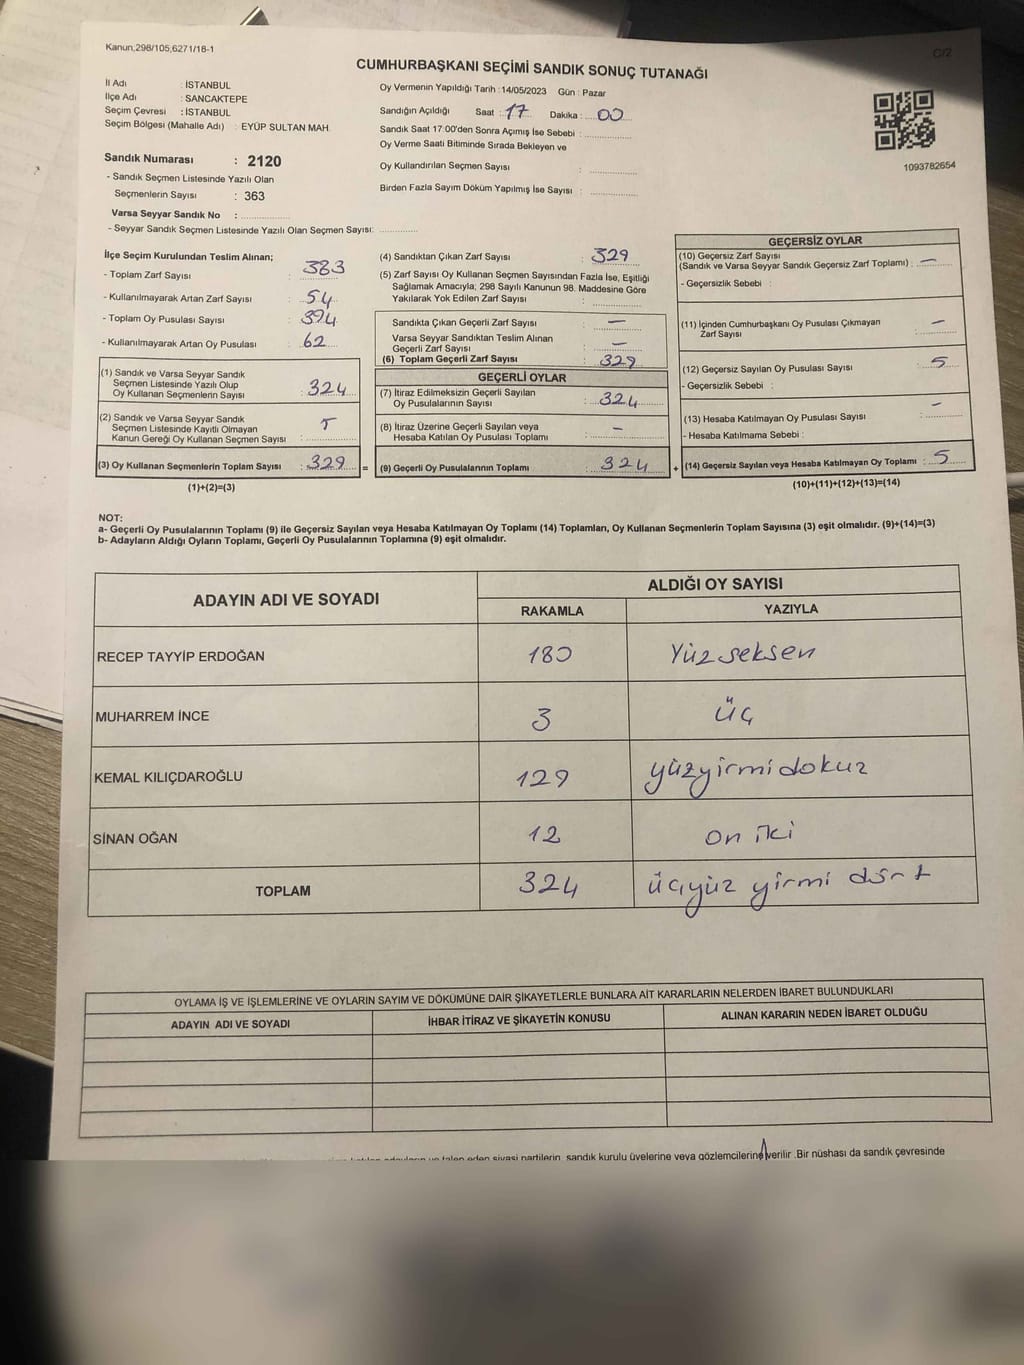 Kanun;298/105,6271/18-1
C/2
CUMHURBAŞKANI SEÇİMİ SANDIK SONUÇ TUTANAĞI
İl Adı : İSTANBUL
İlçe Adı : SANCAKTEPE
Seçim Çevresi : İSTANBUL
Seçim Bölgesi (Mahalle Adı) : EYÜP SULTAN MAH.
Sandık Numarası : 2120
- Sandık Seçmen Listesinde Yazılı Olan
Seçmenlerin Sayısı : 363
Varsa Seyyar Sandık No :
- Seyyar Sandık Seçmen Listesinde Yazılı Olan Seçmen Sayısı:
Oy Vermenin Yapıldığı Tarih :14/05/2023 Gün : Pazar
Sandığın Açıldığı Saat : 17 Dakika : 00
Sandık Saat 17:00'den Sonra Açımış İse Sebebi :
Oy Verme Saati Bitiminde Sırada Bekleyen ve
Oy Kullandırılan Seçmen Sayısı :
Birden Fazla Sayım Döküm Yapılmış İse Sayısı :
1093782654
İlçe Seçim Kurulundan Teslim Alınan;
- Toplam Zarf Sayısı : 383
- Kullanılmayarak Artan Zarf Sayısı : 54
- Toplam Oy Pusulası Sayısı : 394
- Kullanılmayarak Artan Oy Pusulası : 62
(1) Sandık ve Varsa Seyyar Sandık
Seçmen Listesinde Yazılı Olup
Oy Kullanan Seçmenlerin Sayısı : 324
(2) Sandık ve Varsa Seyyar Sandık
Seçmen Listesinde Kayıtlı Olmayan
Kanun Gereği Oy Kullanan Seçmen Sayısı : 5
(3) Oy Kullanan Seçmenlerin Toplam Sayısı : 329 =
(1)+(2)=(3)
(4) Sandıktan Çıkan Zarf Sayısı : 329
(5) Zarf Sayısı Oy Kullanan Seçmen Sayısından Fazla İse, Eşitliği
Sağlamak Amacıyla; 298 Sayılı Kanunun 98. Maddesine Göre
Yakılarak Yok Edilen Zarf Sayısı :
Sandıkta Çıkan Geçerli Zarf Sayısı : —
Varsa Seyyar Sandıktan Teslim Alınan
Geçerli Zarf Sayısı : —
(6) Toplam Geçerli Zarf Sayısı : 329
GEÇERLİ OYLAR
(7) İtiraz Edilmeksizin Geçerli Sayılan
Oy Pusulalarının Sayısı : 324
(8) İtiraz Üzerine Geçerli Sayılan veya
Hesaba Katılan Oy Pusulası Toplamı : —
(9) Geçerli Oy Pusulalarının Toplamı : 324 +
GEÇERSİZ OYLAR
(10) Geçersiz Zarf Sayısı
(Sandık ve Varsa Seyyar Sandık Geçersiz Zarf Toplamı) : —
- Geçersizlik Sebebi :
(11) İçinden Cumhurbaşkanı Oy Pusulası Çıkmayan
Zarf Sayısı : —
(12) Geçersiz Sayılan Oy Pusulası Sayısı : 5
- Geçersizlik Sebebi :
(13) Hesaba Katılmayan Oy Pusulası Sayısı : —
- Hesaba Katılmama Sebebi :
(14) Geçersiz Sayılan veya Hesaba Katılmayan Oy Toplamı : 5
(10)+(11)+(12)+(13)=(14)
NOT:
a- Geçerli Oy Pusulalarının Toplamı (9) ile Geçersiz Sayılan veya Hesaba Katılmayan Oy Toplamı (14) Toplamları, Oy Kullanan Seçmenlerin Toplam Sayısına (3) eşit olmalıdır. (9)+(14)=(3)
b- Adayların Aldığı Oyların Toplamı, Geçerli Oy Pusulalarının Toplamına (9) eşit olmalıdır.
ADAYIN ADI VE SOYADI
ALDIĞI OY SAYISI
RAKAMLA YAZIYLA
RECEP TAYYİP ERDOĞAN 180 Yüzseksen
MUHARREM İNCE 3 üç
KEMAL KILIÇDAROĞLU 129 yüzyirmidokuz
SİNAN OĞAN 12 on iki
TOPLAM 324 üçyüz yirmi dört
OYLAMA İŞ VE İŞLEMLERİNE VE OYLARIN SAYIM VE DÖKÜMÜNE DAİR ŞİKAYETLERLE BUNLARA AİT KARARLARIN NELERDEN İBARET BULUNDUKLARI
ADAYIN ADI VE SOYADI İHBAR İTİRAZ VE ŞİKAYETİN KONUSU ALINAN KARARIN NEDEN İBARET OLDUĞU
siyasi partilerin, sandık kurulu üyelerine veya gözlemcilerine verilir .Bir nüshası da sandık çevresinde